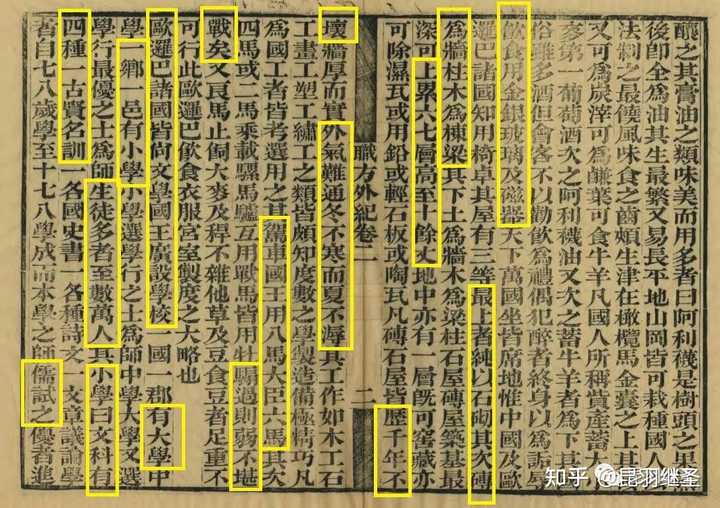 釀之其膏油之類味美而用多者曰阿利襪是樹頭之果
後卽全為油其生最繁又易長平地山岡皆可栽種國人
法制之最饒風味食之齒頰生津在橄欖馬金囊之上其
又可為炭滓可為鹼葉可食牛羊凡國人所稱貲產蓄大
麥第一葡萄酒次之阿利襪油又次之蓄牛羊者為下其
俗雖多酒但會客不以勸飲為禮偶犯醉者終身以為詬辱
飲食用金銀玻璃及磁器天下萬國坐皆席地惟中國及歐
邏巴諸國知用椅卓其屋有三等最上者純以石砌其次磚
為牆柱木為棟梁其下土為牆木為梁柱石屋磚屋築基最
深可上累六七層高至十餘丈地中亦有一層旣可窖藏亦
可除濕瓦或用鉛或輕石板或陶瓦凡磚石屋皆歷千年不
職方外紀卷二 二
壞牆厚而實外氣難通冬不寒而夏不溽其工作如木工石
工畫工塑工繡工之類皆頗知度數之學製造備極精巧凡
為國工者皆考選用之其駕車國王用八馬大臣六馬其次
四馬或二馬乘載騾馬驢互用戰馬皆用牡騸過則弱不堪
戰矣又良馬止飼大麥及稈不雜他草及豆食豆者足重不
可行此歐邏巴飲食衣服宮室製度之大略也
歐邏巴諸國皆尚文學國王廣設學校一國一郡有大學中
學一鄉一邑有小學小學選學行之士為師中學大學又選
學行最優之士為師生徒多者至數萬人其小學曰文科有
四種一古賢名訓一各國史書一各種詩文一文章議論學
者自七八歲學至十七八學成而本學之師儒試之優者進
知乎 @昆羽继圣